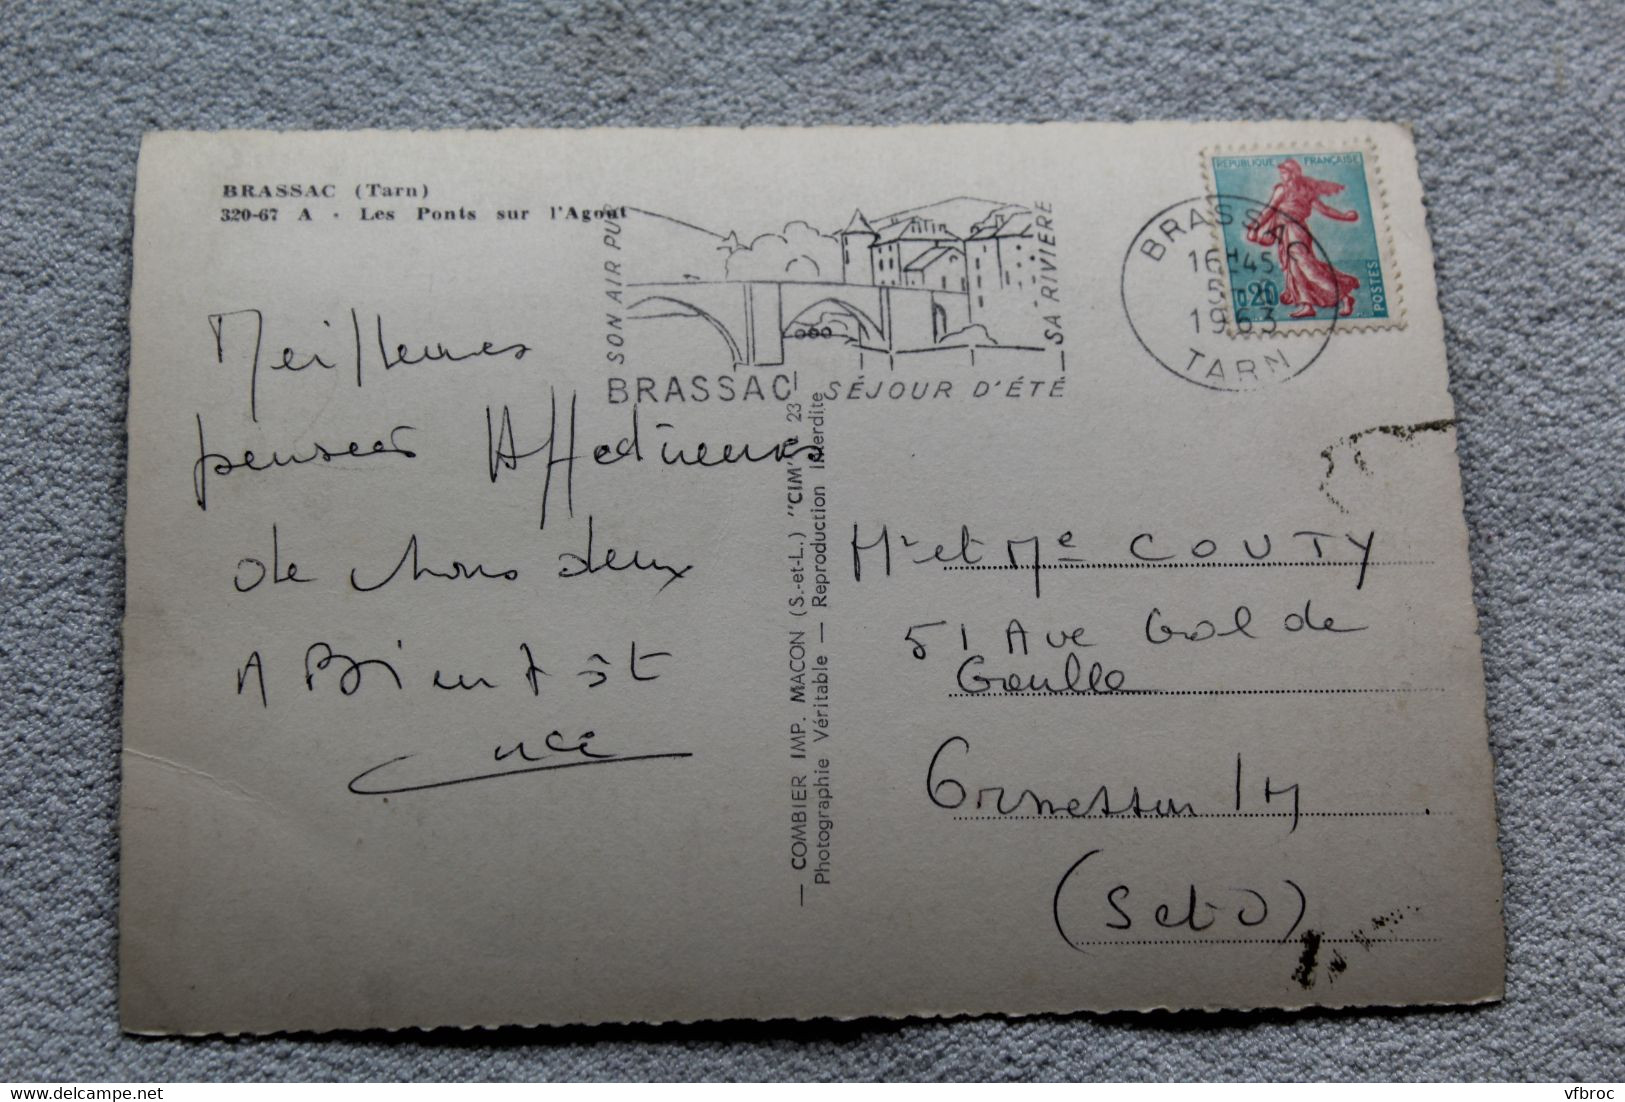 BRASSAC (Tarn)
320-67 A - Les Ponts sur l'Agout
SON AIR PUR
SA RIVIERE
BRASSAC SÉJOUR D'ÉTÉ
BRASSAC
16H45
1963
TARN
REPUBLIQUE FRANÇAISE
0,20
POSTES
Meilleures
pensées Affectueuses
de nous deux
A Bientôt
— COMBIER IMP. MACON (S.-et-L.) "CIM" 23
Photographie Véritable — Reproduction Interdite
Mr et Me COUTY
51 Ave Gal de
Gaulle
Ormesson
(S et O)
vfbroc